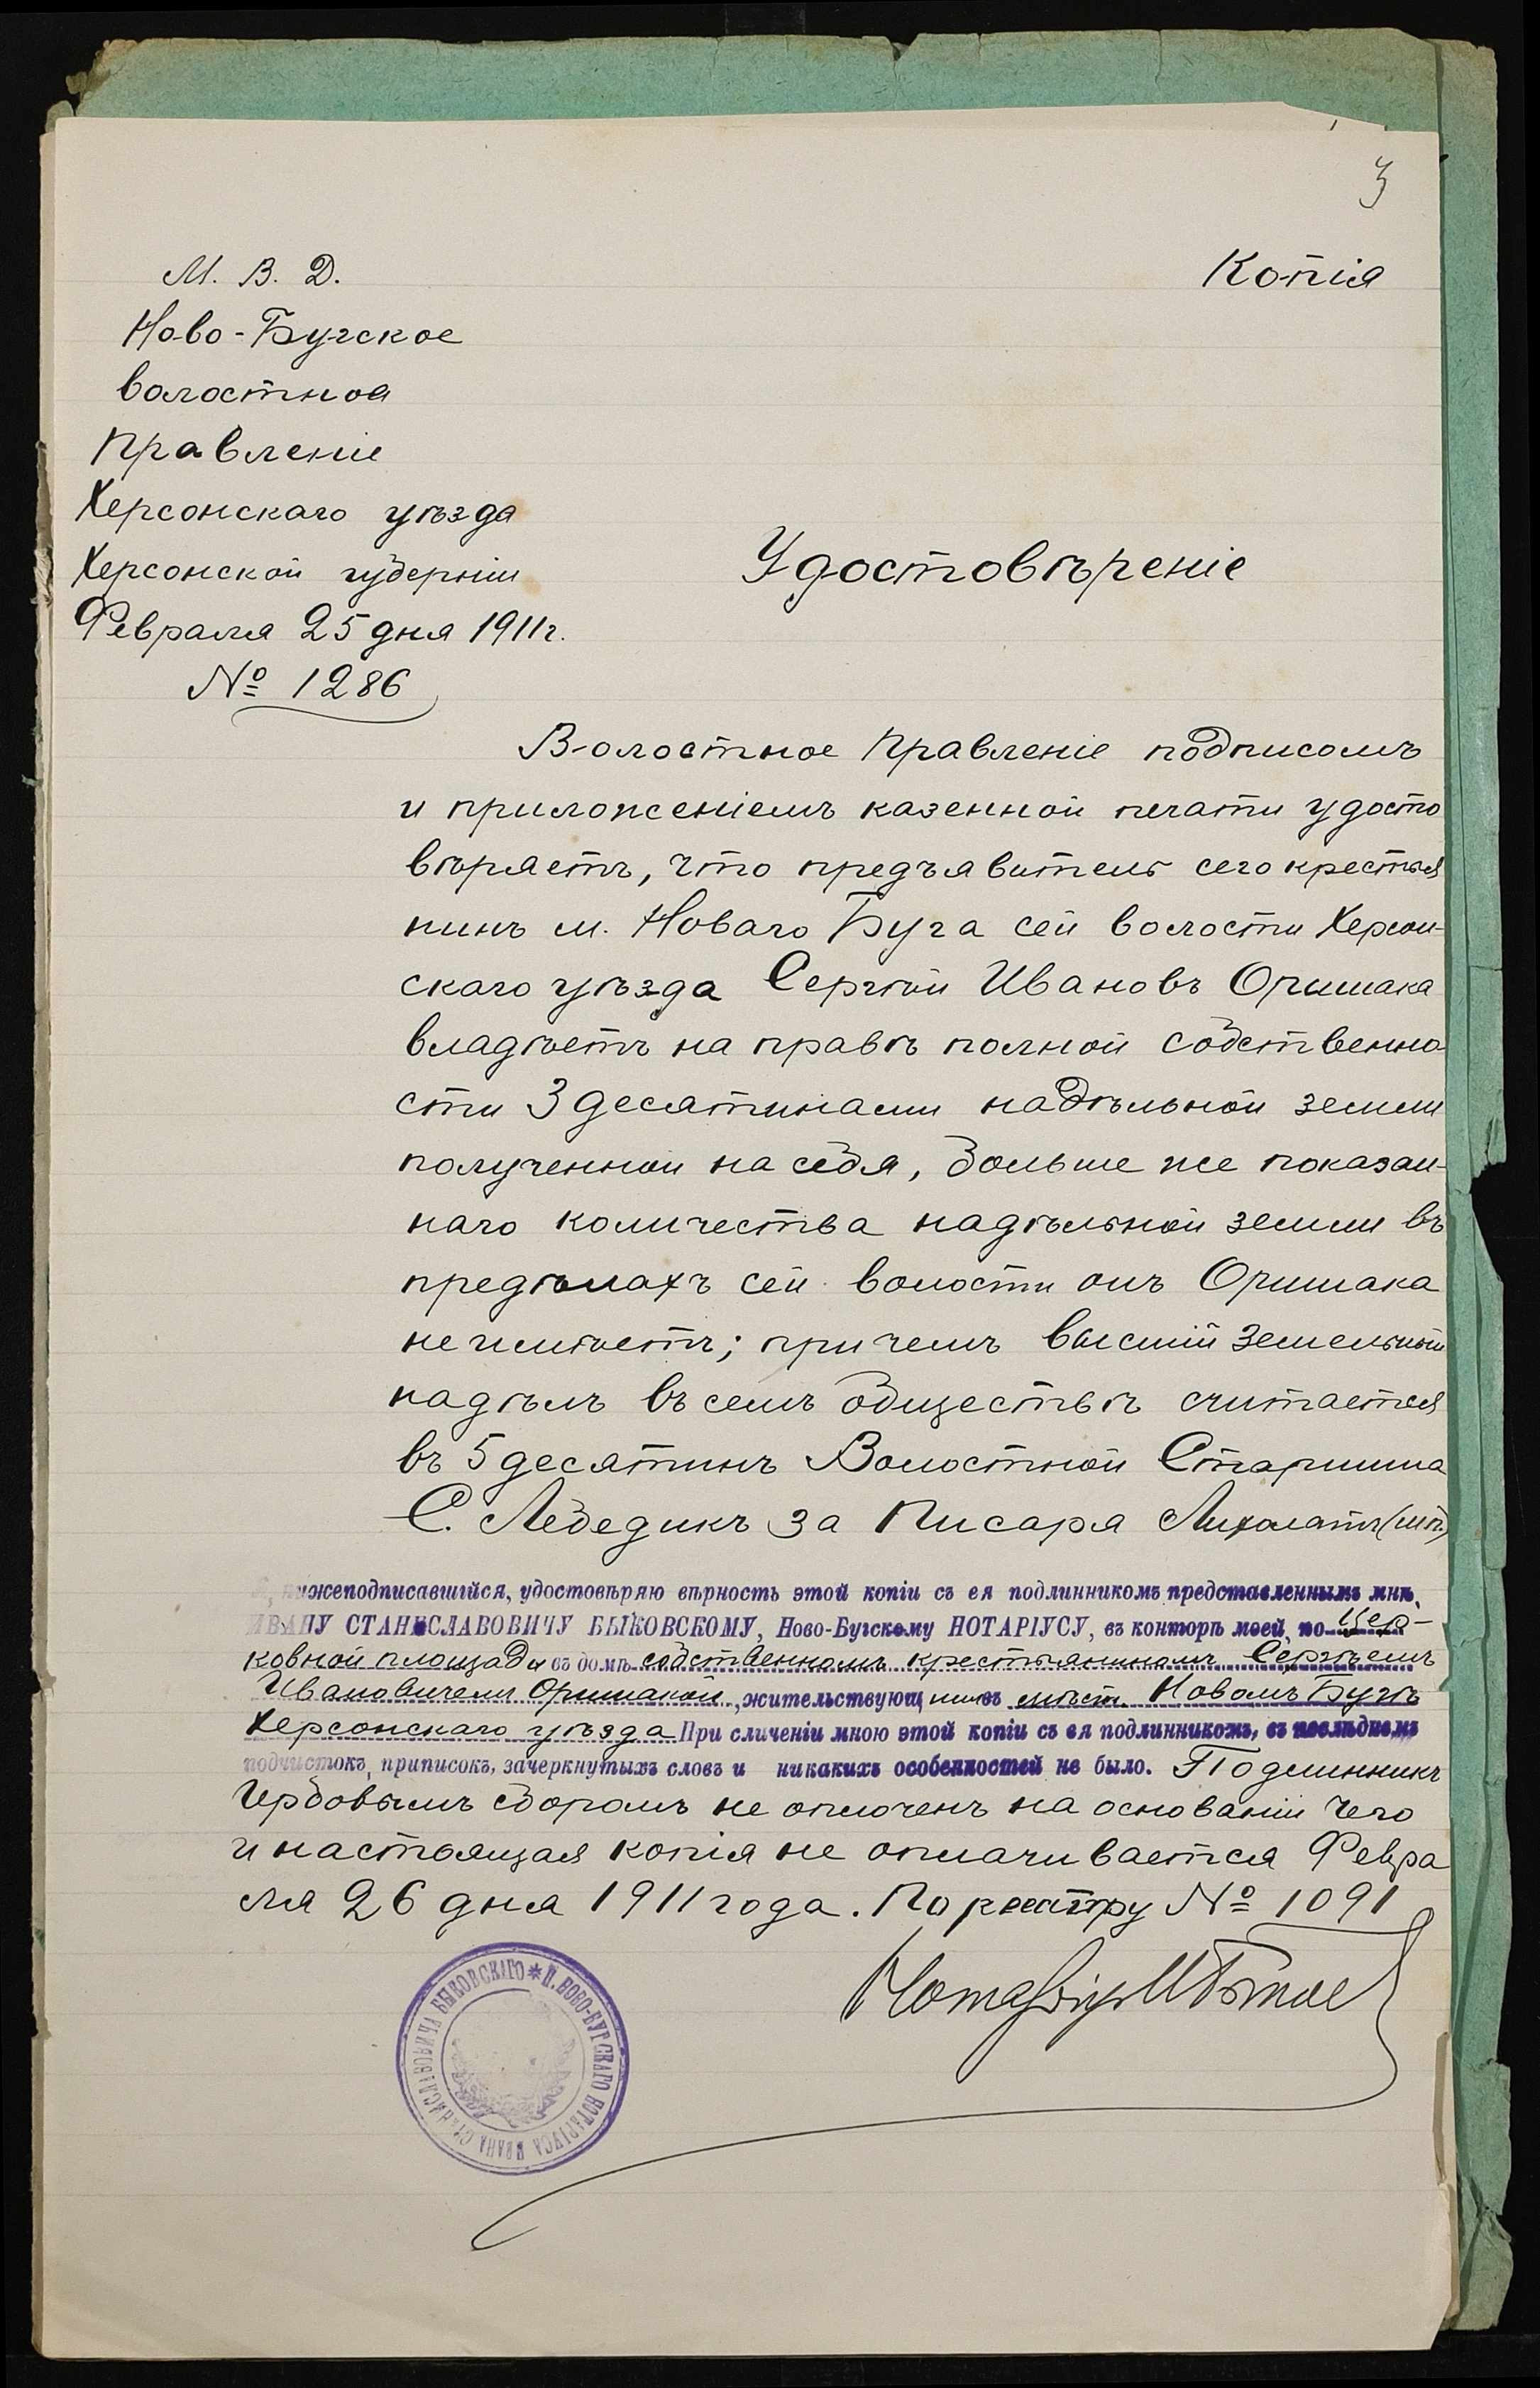 3
М. В. Д.
Копія
Ново-Бугское
волостное
Правленіе
Херсонскаго уѣзда
Херсонской губерніи
Удостовѣреніе
Февраля 25 дня 1911 г.
№ 1286
Волостное Правленіе подписомъ
и приложеніемъ казенной печати удосто
вѣряетъ, что предъявитель сего крестья
нинъ м. Новаго Буга сей волости Херсон-
скаго уѣзда Сергѣй Ивановъ Оришака
владѣетъ на правѣ полной собственно
сти 3 десятинами надѣльной земли
полученной на себя, больше же показан-
наго количества надѣльной земли въ
предѣлахъ сей волости онъ Оришака
не имѣетъ; при чемъ высшій земельный
надѣлъ въ семъ обществѣ считается
въ 5 десятинъ Волостной Старшина
С. Лебедикъ за Писаря
нижеподписавшійся, удостовѣряю вѣрность этой копіи съ ея подлинникомъ представленнымъ мнѣ,
ИВАНУ СТАНИСЛАВОВИЧУ БЫКОВСКОМУ, Ново-Бугскому НОТАРІУСУ, въ конторѣ моей, по Цер-
ковной площади въ домѣ собственномъ крестьяниномъ Сергѣемъ
Ивановичемъ Оришакой, жительствующимъ въ мѣст. Новомъ Бугѣ
Херсонскаго уѣзда При сличеніи мною этой копіи съ ея подлинникомъ, въ послѣднемъ
подчистокъ, приписокъ, зачеркнутыхъ словъ и никакихъ особенностей не было. Подлинникъ
Гербовымъ сборомъ не оплоченъ на основаніи чего
и настоящая копія не оплачивается Февра
ля 26 дня 1911 года. По реестру № 1091
Нотаріус
П. НОВО-БУГСКАГО НОТАРІУСА ИВАНА СТАНИСЛАВОВИЧА БЫКОВСКАГО